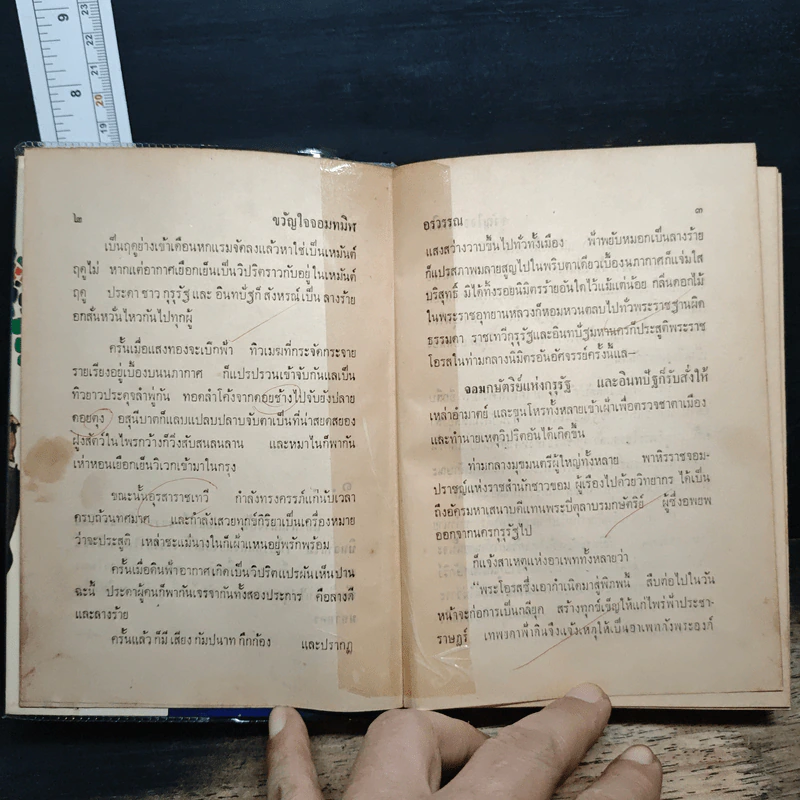 9
8
23
22
21
20
19
๒
ขวัญใจจอมทมิฬ
เป็นฤดูย่างเข้าเดือนหกแรมจัดลงแล้วหาใช่เป็นเหมันต์
ฤดูไม่ หากแต่อากาศเยือกเย็นเป็นวิปริตราวกับอยู่ในเหมันต์
ฤดู ประดาชาว กุรุรัฐ และ อินทปัฐก็ สังหรณ์ เป็น ลางร้าย
อกสั่นหวั่นไหวกันไปทุกผู้
ครั้นเมื่อแสงทองจะเบิกฟ้า ทิวเมฆที่กระจัดกระจาย
รายเรียงอยู่เบื้องบนนภากาศ ก็แปรปรวนเข้าจับกันแลเป็น
ทิวยาวประดุจลำพู่กัน ทอดลำโค้งจากดอยช้างไปจับยังปลาย
ดอยตุง อสุนีบาตก็แลบแปลบปลาบจับตาเป็นที่น่าสยดสยอง
ฝูงสัตว์ในไพรกว้างก็วิ่งสับสนลนลาน และหมาไนก็พากัน
เห่าหอนเยือกเย็นวิเวกเข้ามาในกรุง
ขณะนั้นอุรสาราชเทวี กำลังทรงครรภ์แก่นับเวลา
ครบถ้วนทศมาศ และกำลังเสวยทุกข์กิริยาเป็นเครื่องหมาย
ว่าจะประสูติ เหล่าชะแม่นางในก็เฝ้าแหนอยู่พรักพร้อม
ครั้นเมื่อดินฟ้าอากาศเกิดเป็นวิปริตแปรผันเห็นปาน
ฉะนี้ ประดาผู้คนก็พากันเจรจากันทั้งสองประการ คือลางดี
และลางร้าย
ครั้นแล้ว ก็มี เสียง กัมปนาท กึกก้อง และปรากฏ
อรวรรณ
๓
แสงสว่างวาบขึ้นไปทั่วทั้งเมือง ฟ้าพยับหมอกเป็นลางร้าย
ก็แปรสภาพมลายสูญไปในพริบตาเดียวเบื้องนภากาศก็แจ่มใส
บริสุทธิ์ มิได้ทิ้งรอยนิมิตรร้ายอันใดไว้แม้แต่น้อย กลิ่นดอกไม้
ในพระราชอุทยานหลวงก็หอมหวนตลบไปทั่วพระราชฐานผิด
ธรรมดา ราชเทวีกุรุรัฐและอินทปัฐมหานครก็ประสูติพระราช
โอรสในท่ามกลางนิมิตรอันอัศจรรย์ครั้งนี้แล—
จอมกษัตริย์แห่งกุรุรัฐ และอินทปัฐก็รับสั่งให้
เหล่าอำมาตย์ และขุนโหรทั้งหลายเข้าเฝ้าเพื่อตรวจชาตาเมือง
และทำนายเหตุวิปริตอันได้เกิดขึ้น
ท่ามกลางมุขมนตรีผู้ใหญ่ทั้งหลาย พาหิรราชจอม-
ปราชญ์แห่งราชสำนักชาวขอม ผู้เรืองไปด้วยวิทยากร ได้เป็น
ถึงอัครมหาเสนาบดีแทนพระบิดุลาบรมกษัตริย์ ผู้ซึ่งอพยพ
ออกจากนครกุรุรัฐไป
ก็แจ้งสาเหตุแห่งอาเพททั้งหลายว่า
“พระโอรสซึ่งเอากำเนิดมาสู่พิภพนี้ สืบต่อไปในวัน
หน้าจะก่อการเป็นกลียุค สร้างทุกข์เข็ญให้แก่ไพร่ฟ้าประชา-
ราษฎร์ เทพดาฟ้าดินจึงแจ้งเหตุให้เป็นอาเพทดังพระองค์